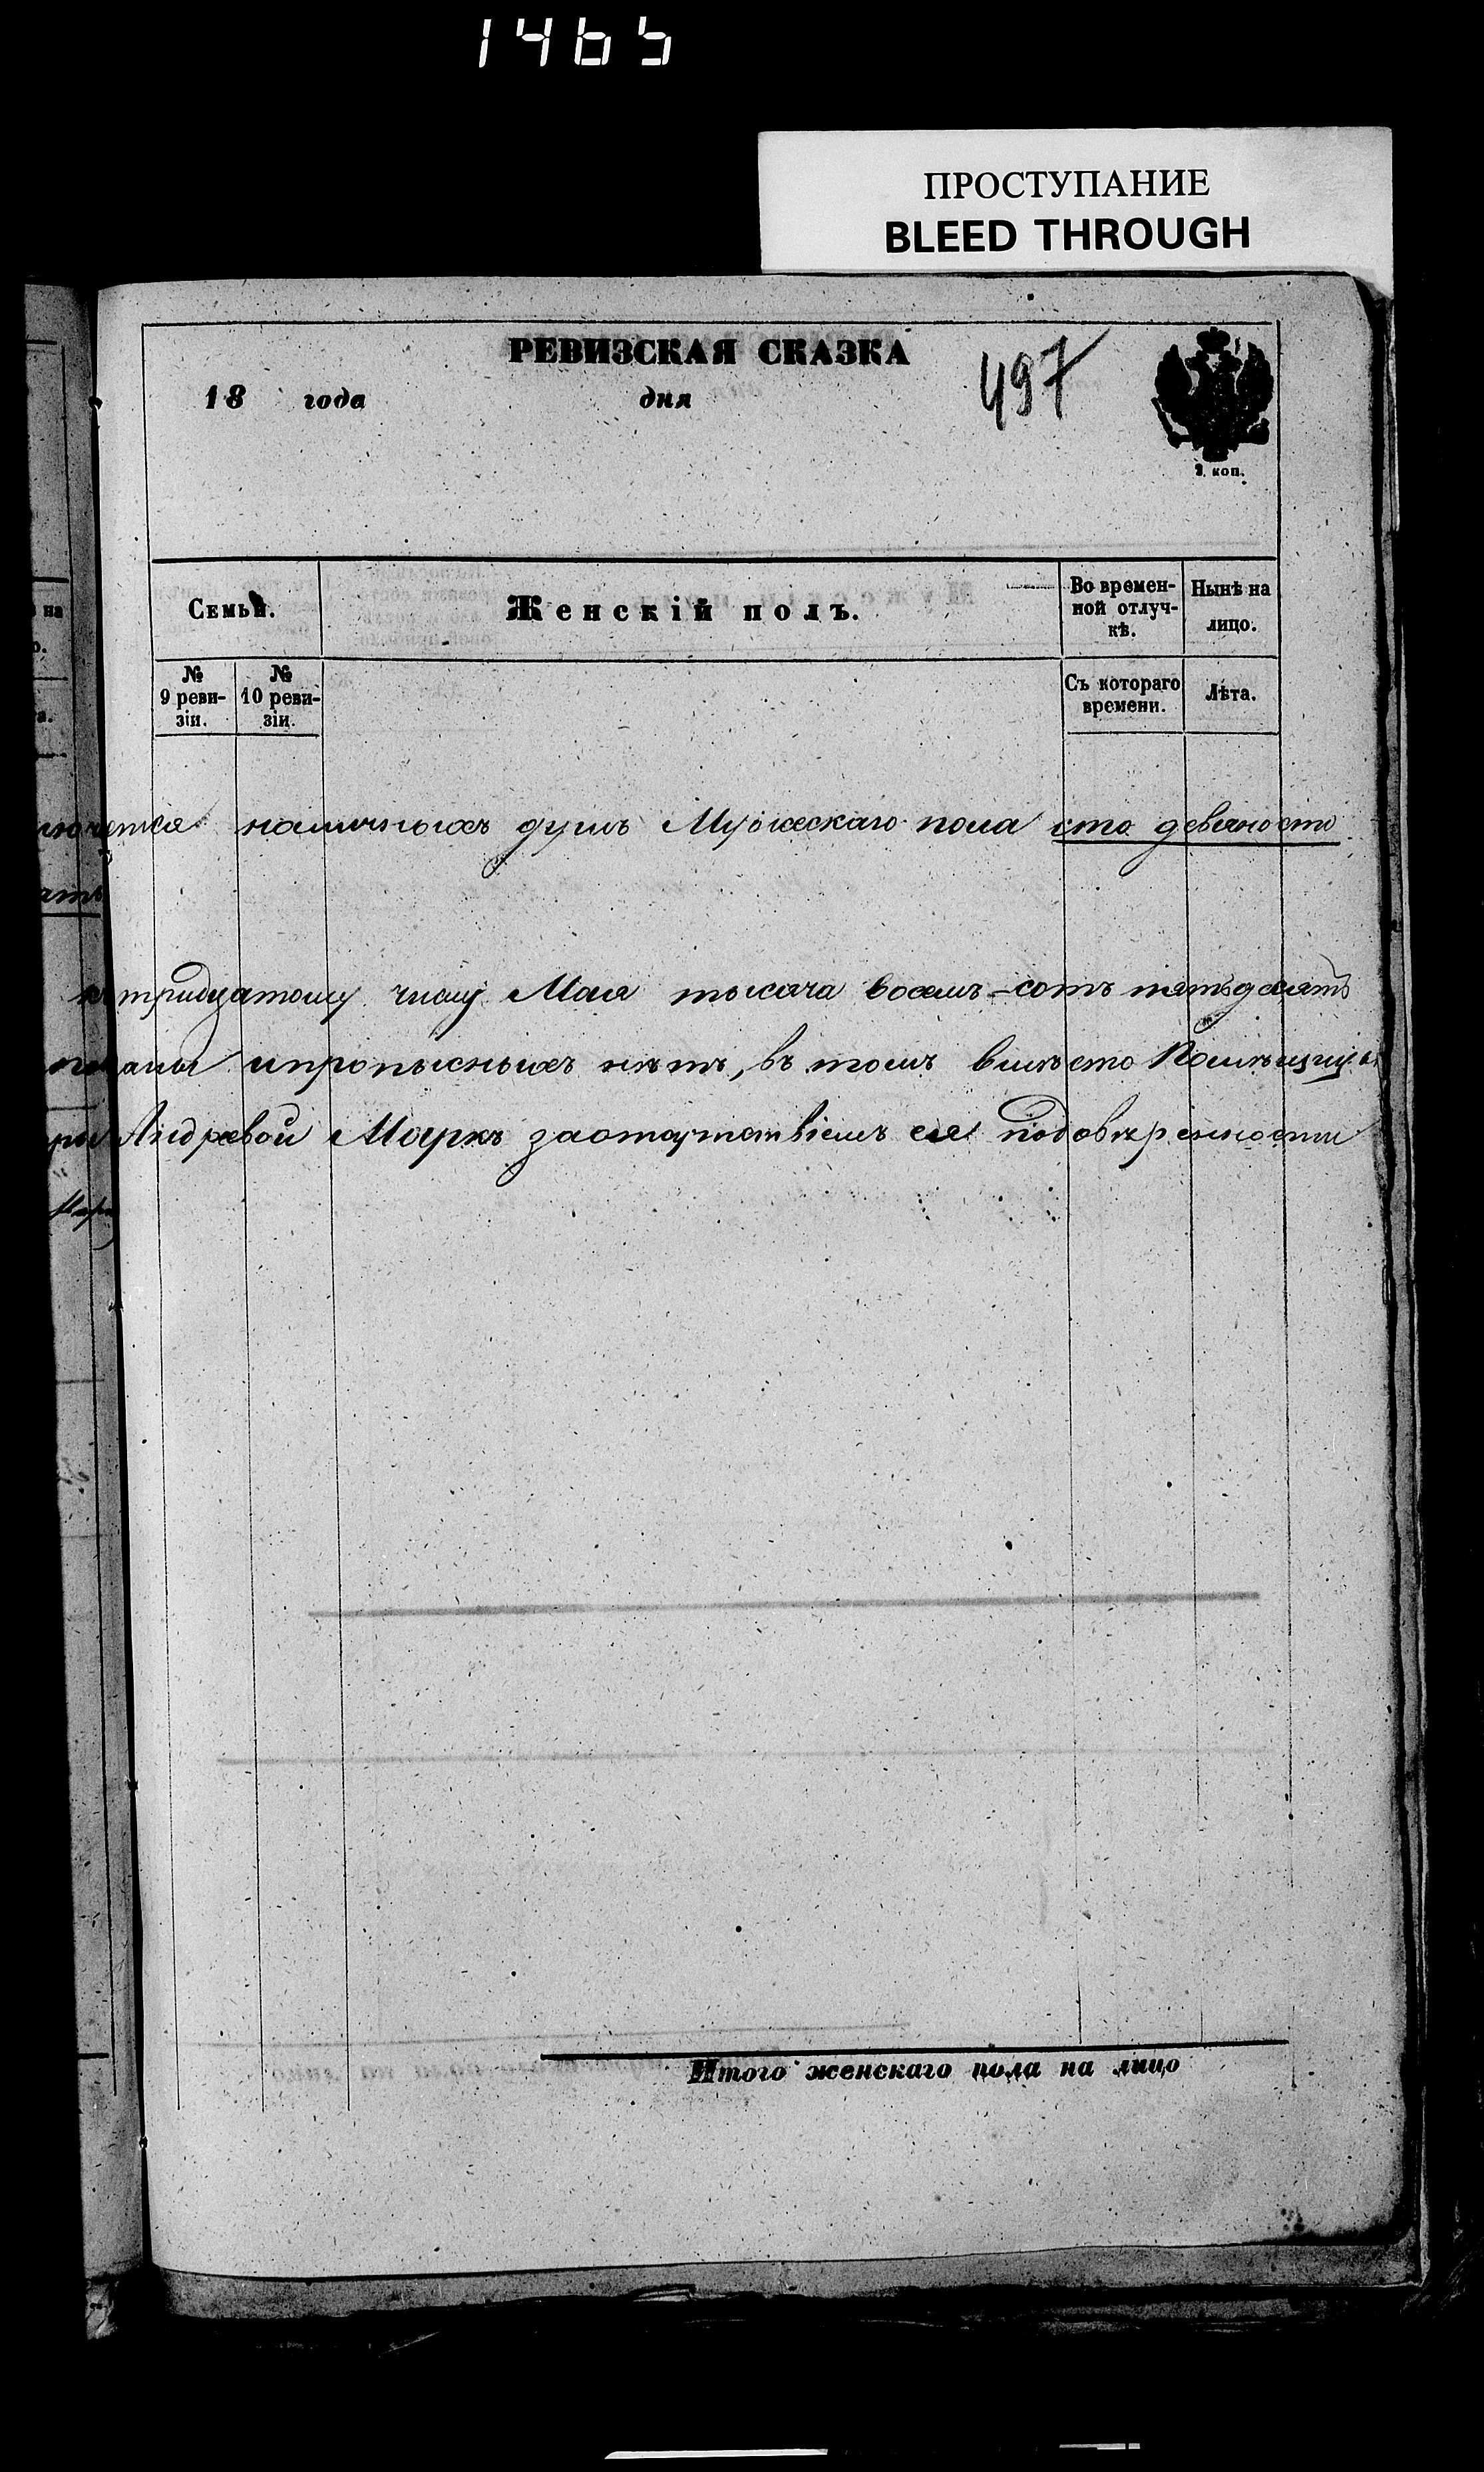 1465
ПРОСТУПАНИЕ
BLEED THROUGH
РЕВИЗСКАЯ СКАЗКА
497
18 года дня
2. коп.
Семьи.
Женскій полъ.
Во времен-
ной отлуч-
кѣ.
Нынѣ на
лицо.
№
9 реви-
зіи.
№
10 реви-
зіи.
Съ котораго
времени.
Лѣта.
наличныхъ душъ Мужескаго пола сто девяносто
тридцатому числу Мая тысяча восемь-сотъ пятьдесятъ
ипрописныхъ нѣтъ, въ томъ вмѣсто Помѣщицы
Андреевой Маркъ заотсутствіемъ ея подовѣренности
Итого женскаго пола на лицо